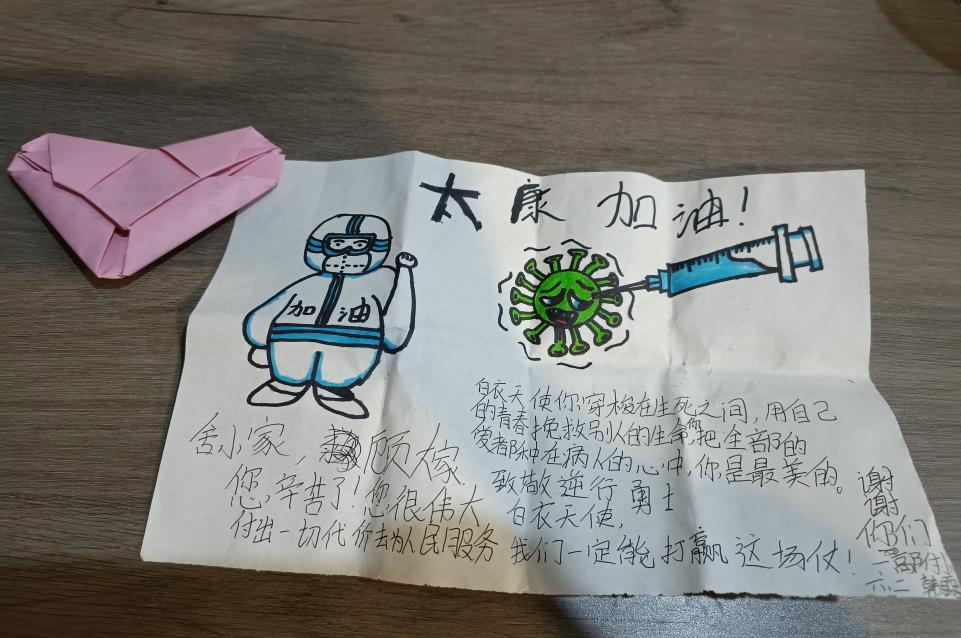 太康加油!
加油
白衣天使你穿梭在生死之间,用自己
的青春挽救别人的生命,您把全部的
爱都种在病人的心中,你是最美的。
致敬逆行勇士
白衣天使,
我们一定能打赢这场仗!
舍小家,顾大嫁
您,辛苦了!您很伟大
付出一切代价去为人民服务
谢
谢
你们
六、二